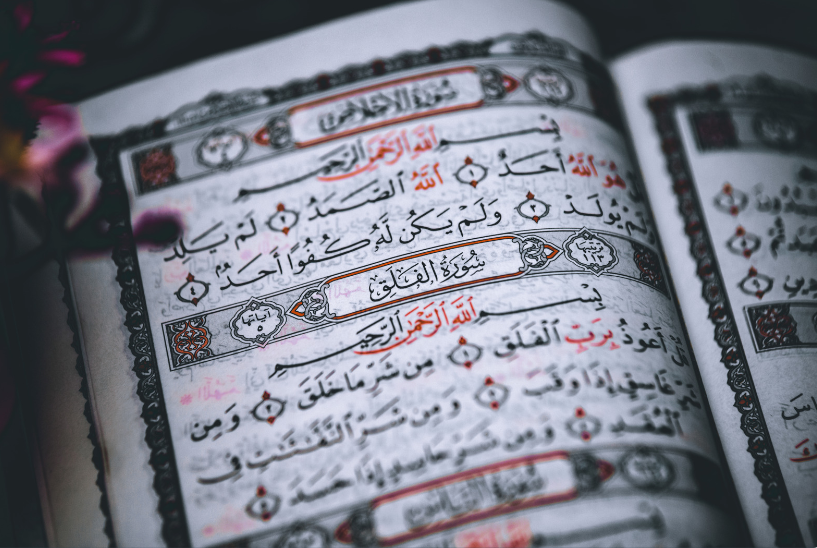 سُورَةُ الإِخْلَاصِ
بِسْمِ اللَّهِ الرَّحْمَٰنِ الرَّحِيمِ
هُوَ اللَّهُ أَحَدٌ ١ اللَّهُ الصَّمَدُ ٢ لَمْ يَلِدْ
وَلَمْ يُولَدْ ٣ وَلَمْ يَكُن لَّهُ كُفُوًا أَحَدٌ ٤
سُورَةُ الْفَلَقِ
تَرتيبُهَا ١١٣
آيَاتُهَا ٥
بِسْمِ اللَّهِ الرَّحْمَٰنِ الرَّحِيمِ
قُلْ أَعُوذُ بِرَبِّ الْفَلَقِ ١ مِن شَرِّ مَا خَلَقَ ٢ وَمِن
شَرِّ غَاسِقٍ إِذَا وَقَبَ ٣ وَمِن شَرِّ النَّفَّٰثَٰتِ فِي
الْعُقَدِ ٤ وَمِن شَرِّ حَاسِدٍ إِذَا حَسَدَ ٥
سُورَةُ النَّاسِ